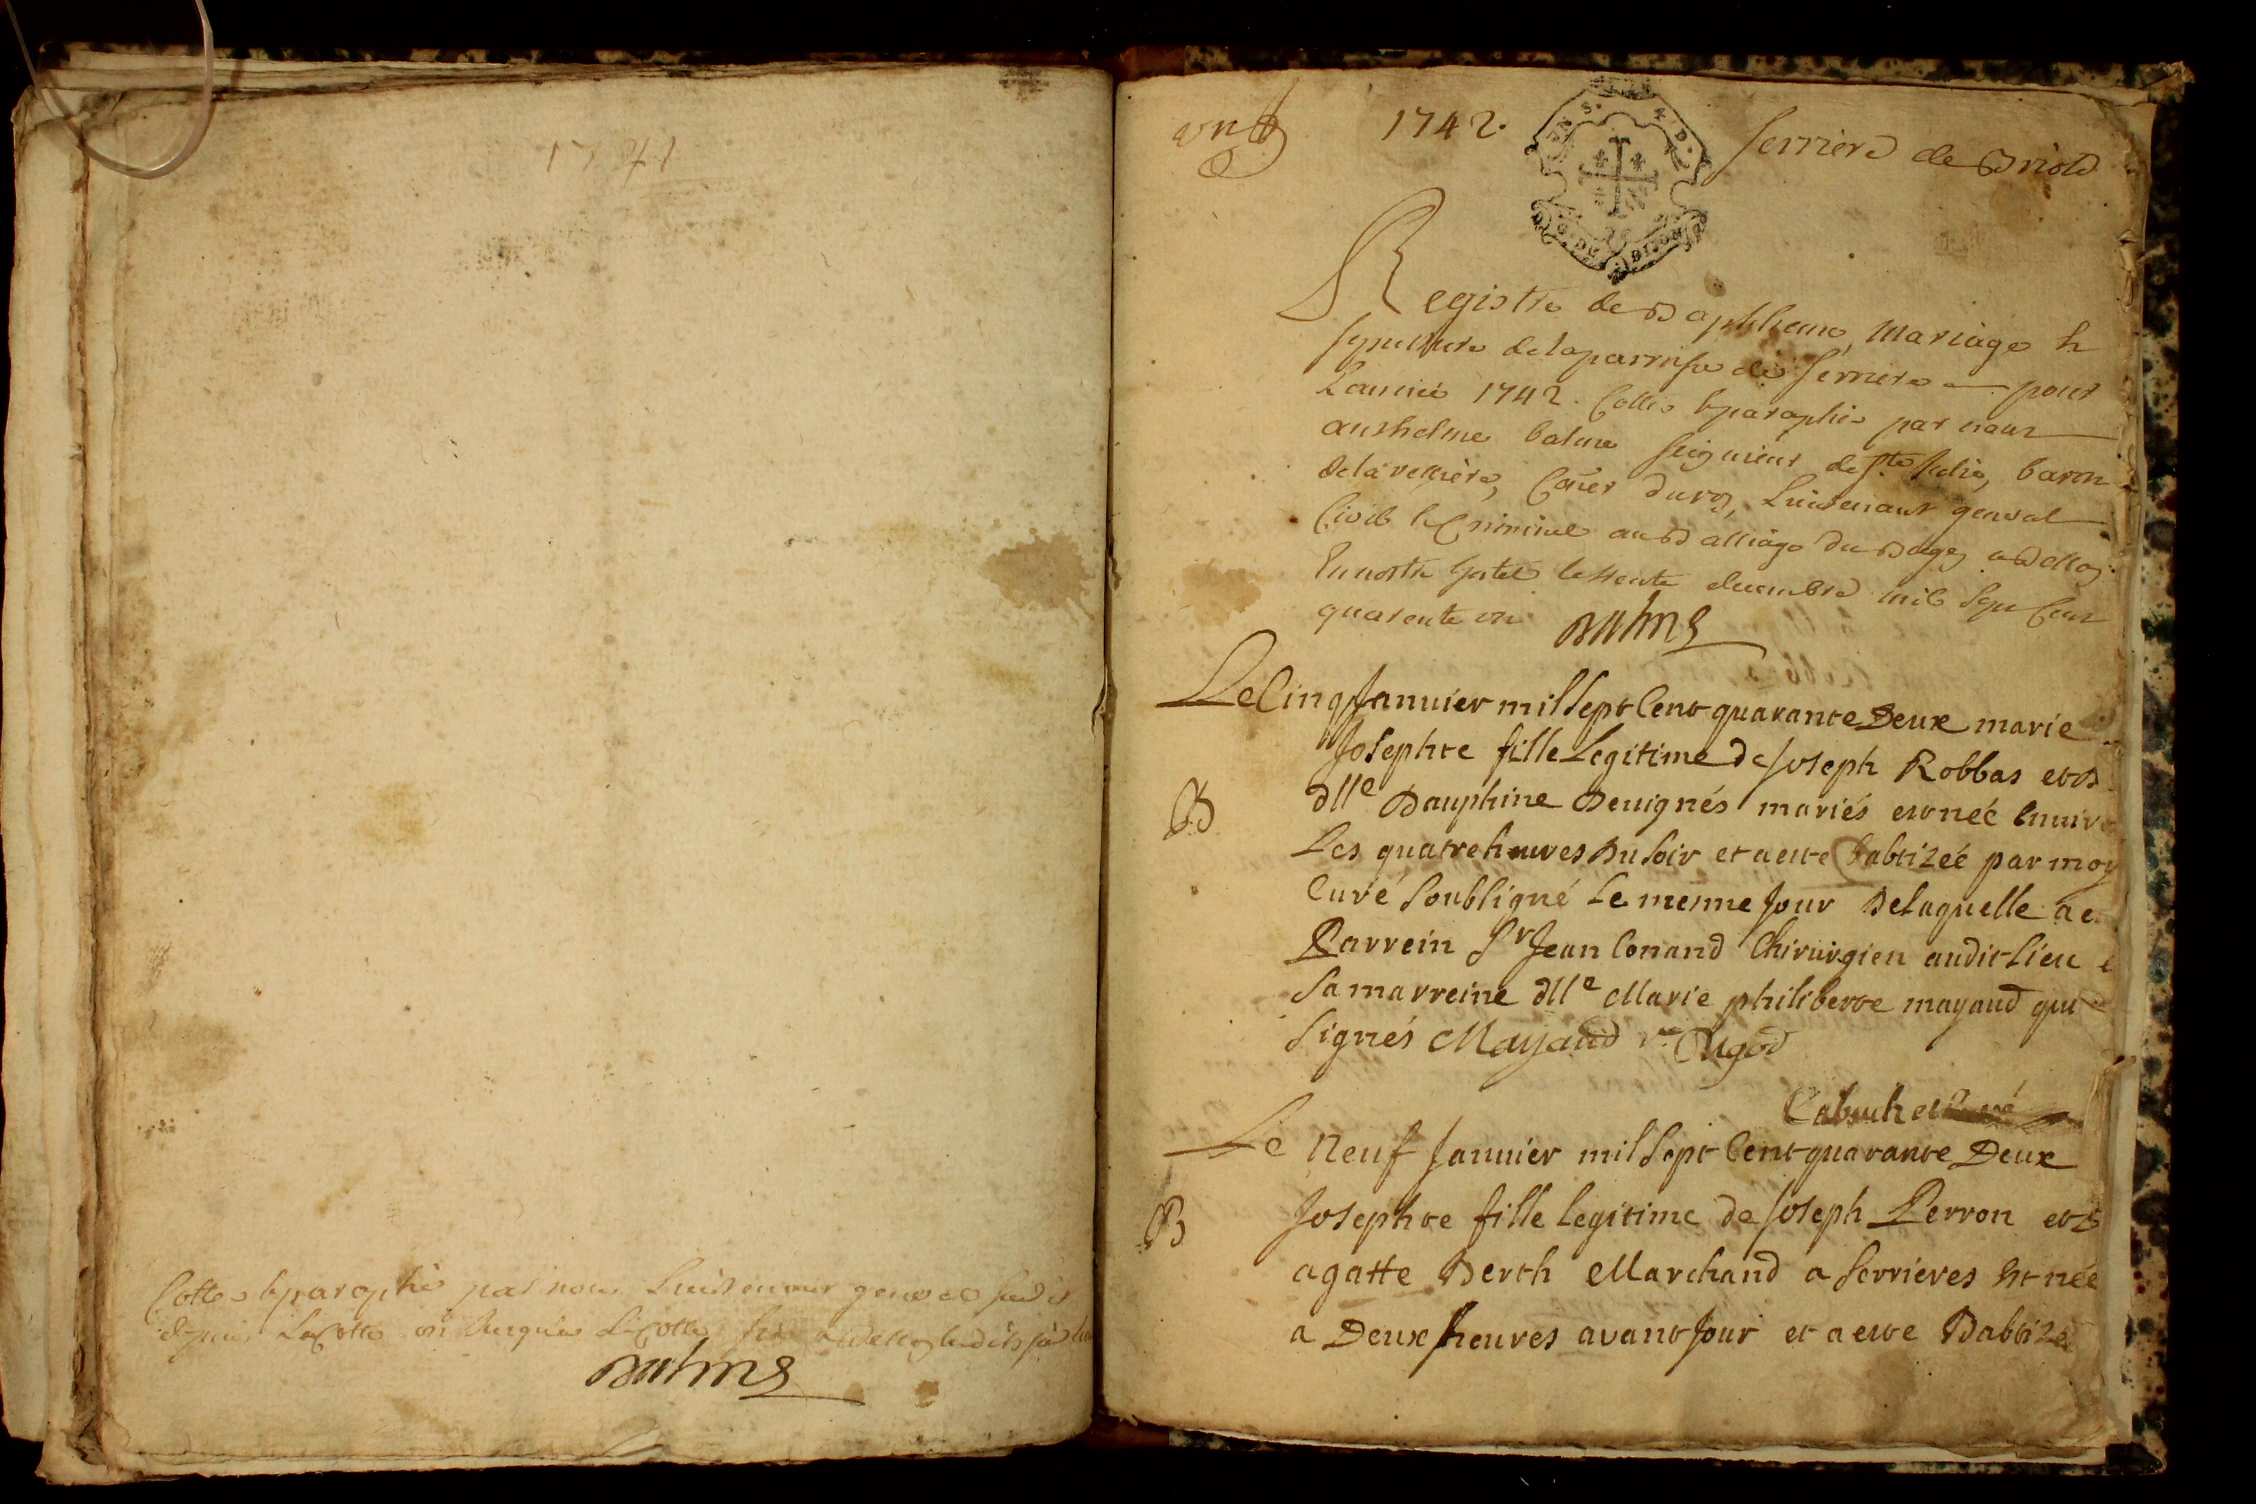 1741
Cottes & paraphé par nous Lieutenant general susdit
depuis La Cotte un Jusques La Cotte
Balme
un
1742.
Serriere de Briord
GEN. DE DIJON
Registre de Baptheme, Mariage &
sepulture de la parroisse de Serriere pour
L'année 1742. Cotté & paraphé par nous
anthelme balme seigneur de Ste Julie, baron
de la velliere, Coner du roy, Lieutenant general
Civil & Criminel au Balliage du Bugey a Belley
En nostre hotel le trente decembre mil sept cent
quarente un Balme
Le Cinq Januier mil sept Cent quarante Deux marie
Josephte fille Legitime de Joseph Robbas et D
B
dlle Dauphine Deuignés mariés et née enuiro
Les quatre heures du soir et a este babtizeé par moy
Curé soubsigné Le mesme Jour De laquelle a e
Parrein Sr Jean Conand Chirurgien audit Lieu e
sa marreine dlle Marie philiberte mayaud qui
signés Mayaud
Cabuchet Curé
Le neuf Januier mil sept Cent quarante Deux
B
Josephte fille legitime de Joseph Perron et D
agatte Berth Marchand a serrieres est née
a Deux heures auant Jour et a este Babtizé